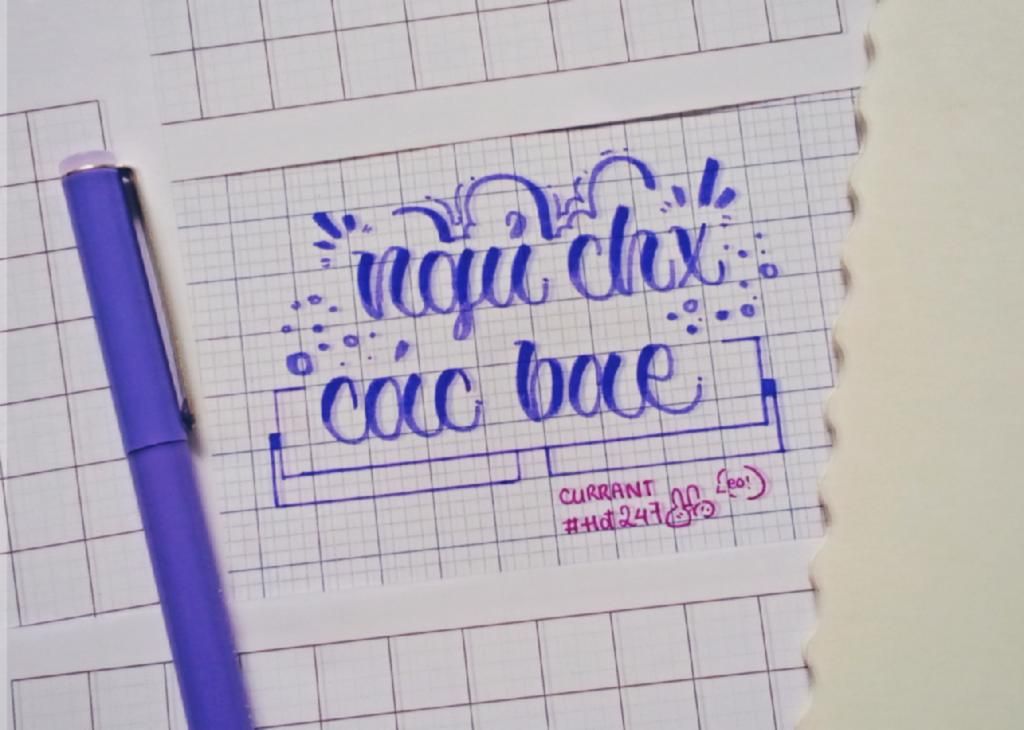 ngủ chx
các bae
CURRANT
#Hot247
(eo!)